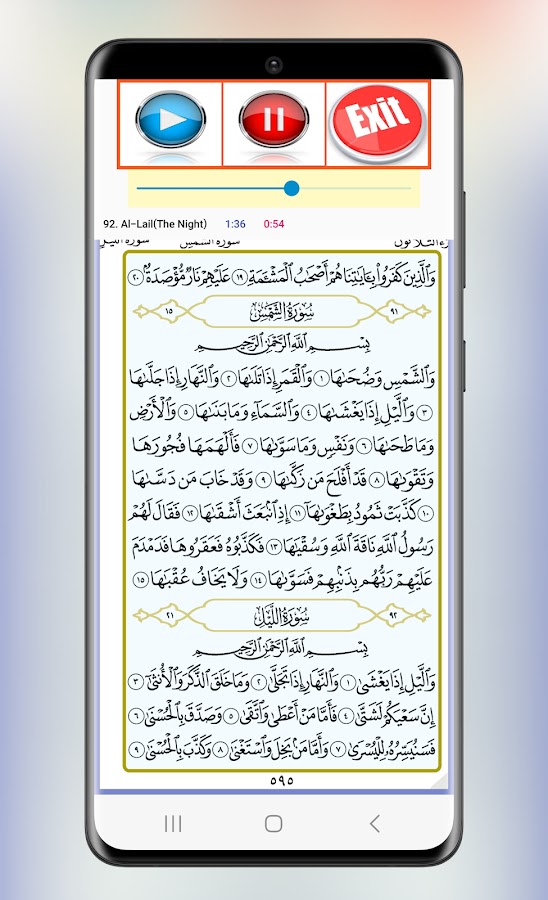 Exit
92. Al-Lail(The Night) 1:36 0:54
سورة الشمس
وَالَّذِينَ كَفَرُوا۟ بِـَٔايَـٰتِنَا هُمْ أَصْحَـٰبُ ٱلْمَشْـَٔمَةِ ١٩ عَلَيْهِمْ نَارٌ مُّؤْصَدَةٌۢ ٢٠
٩١ سُورَةُ الشَّمْسِ ١٥
بِسْمِ اللَّهِ الرَّحْمَٰنِ الرَّحِيمِ
وَٱلشَّمْسِ وَضُحَىٰهَا ١ وَٱلْقَمَرِ إِذَا تَلَىٰهَا ٢ وَٱلنَّهَارِ إِذَا جَلَّىٰهَا
٣ وَٱلَّيْلِ إِذَا يَغْشَىٰهَا ٤ وَٱلسَّمَآءِ وَمَا بَنَىٰهَا ٥ وَٱلْأَرْضِ
وَمَا طَحَىٰهَا ٦ وَنَفْسٍ وَمَا سَوَّىٰهَا ٧ فَأَلْهَمَهَا فُجُورَهَا
وَتَقْوَىٰهَا ٨ قَدْ أَفْلَحَ مَن زَكَّىٰهَا ٩ وَقَدْ خَابَ مَن دَسَّىٰهَا
١٠ كَذَّبَتْ ثَمُودُ بِطَغْوَىٰهَآ ١١ إِذِ ٱنۢبَعَثَ أَشْقَىٰهَا ١٢ فَقَالَ لَهُمْ
رَسُولُ ٱللَّهِ نَاقَةَ ٱللَّهِ وَسُقْيَـٰهَا ١٣ فَكَذَّبُوهُ فَعَقَرُوهَا فَدَمْدَمَ
عَلَيْهِمْ رَبُّهُم بِذَنۢبِهِمْ فَسَوَّىٰهَا ١٤ وَلَا يَخَافُ عُقْبَـٰهَا ١٥
٩٢ سُورَةُ اللَّيْلِ ٢١
بِسْمِ اللَّهِ الرَّحْمَٰنِ الرَّحِيمِ
وَٱلَّيْلِ إِذَا يَغْشَىٰ ١ وَٱلنَّهَارِ إِذَا تَجَلَّىٰ ٢ وَمَا خَلَقَ ٱلذَّكَرَ وَٱلْأُنثَىٰٓ ٣
إِنَّ سَعْيَكُمْ لَشَتَّىٰ ٤ فَأَمَّا مَنْ أَعْطَىٰ وَٱتَّقَىٰ ٥ وَصَدَّقَ بِٱلْحُسْنَىٰ ٦
فَسَنُيَسِّرُهُۥ لِلْيُسْرَىٰ ٧ وَأَمَّا مَنۢ بَخِلَ وَٱسْتَغْنَىٰ ٨ وَكَذَّبَ بِٱلْحُسْنَىٰ ٩
٥٩٥